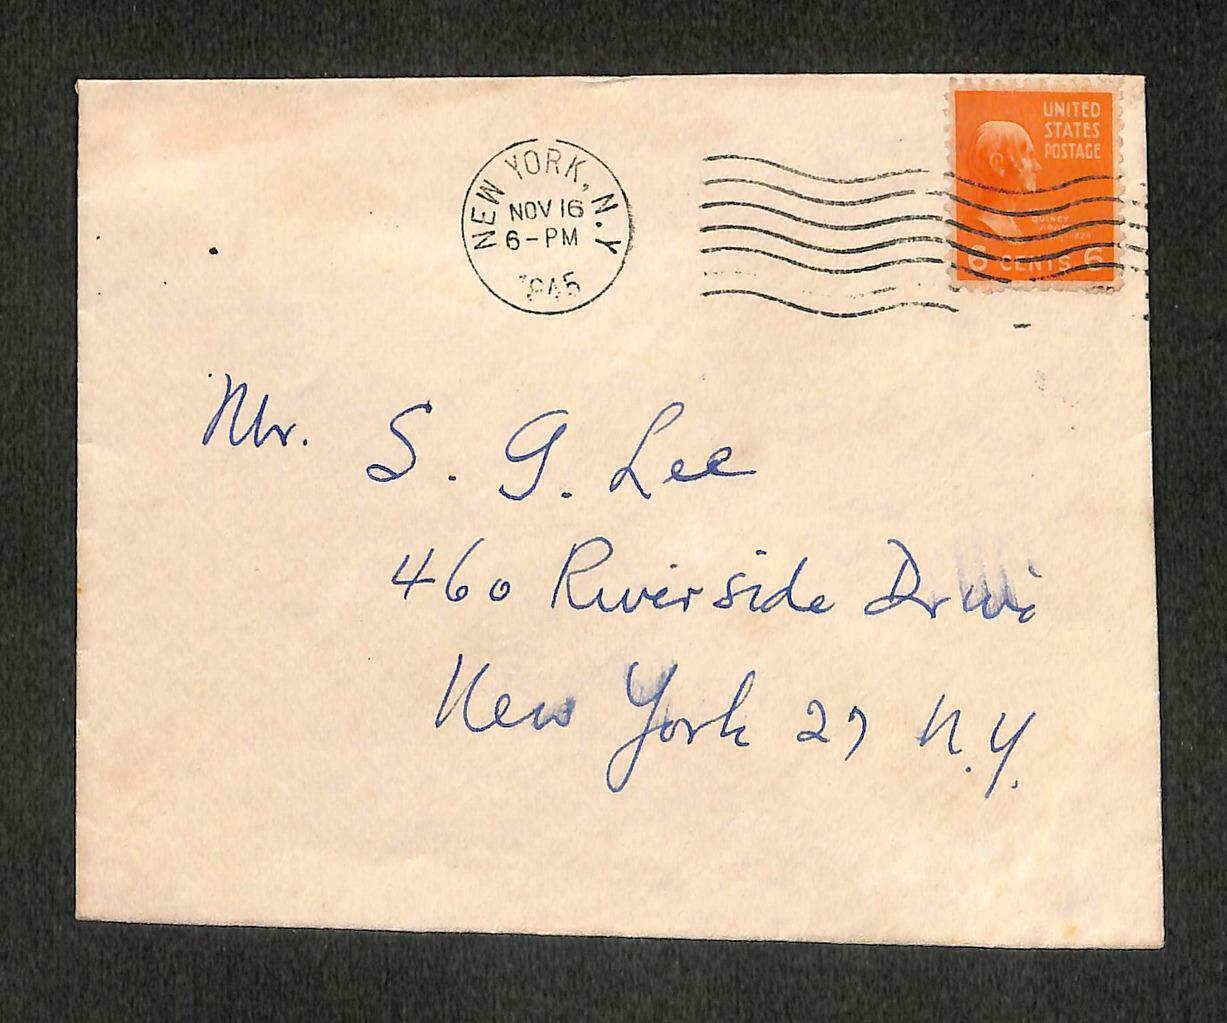 UNITED
STATES
POSTAGE
QUINCY
6 CENTS 6
NEW YORK, N.Y
NOV 16
6-PM
1945
Mr. S. G. Lee
460 Riverside Drive
New York 27 N.Y.